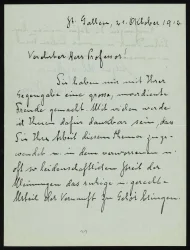 St. Gallen, 21. Oktober 1912
Verehrter Herr Professor!
Sie haben mir mit Ihrer
Gegengabe eine grosse, unverdiente
Freude gemacht. Mit werde
ich Ihnen dafür dankbar sein, dass
Sie Ihre Arbeit diesem Thema zuge-
wendet u. in dem verworrenen u.
oft so leidenschaftlichen Streit der
Meinungen das ruhige u. gerechte
Urteil der Vernunft zu bringen.